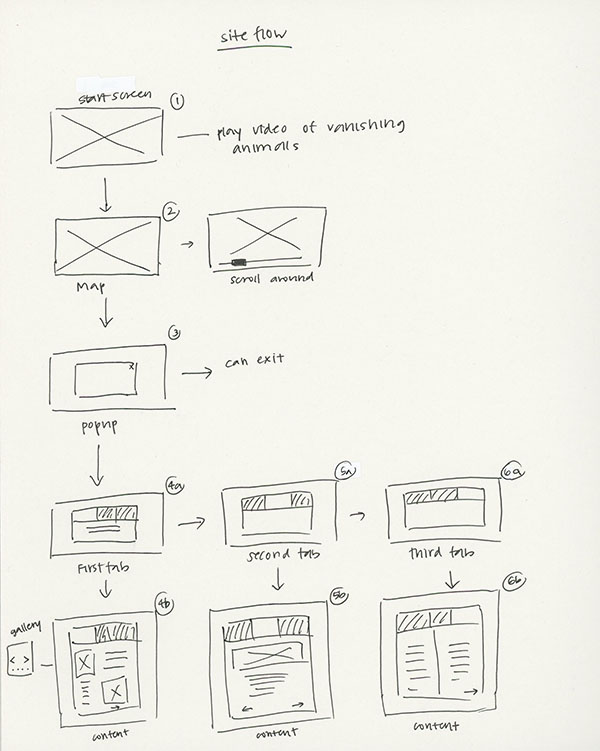 site flow
start screen
1
play video of vanishing
animals
2
map
scroll around
3
x
can exit
popup
4a
5a
6a
first tab
second tab
third tab
4b
5b
6b
gallery
< >
....
content
content
content